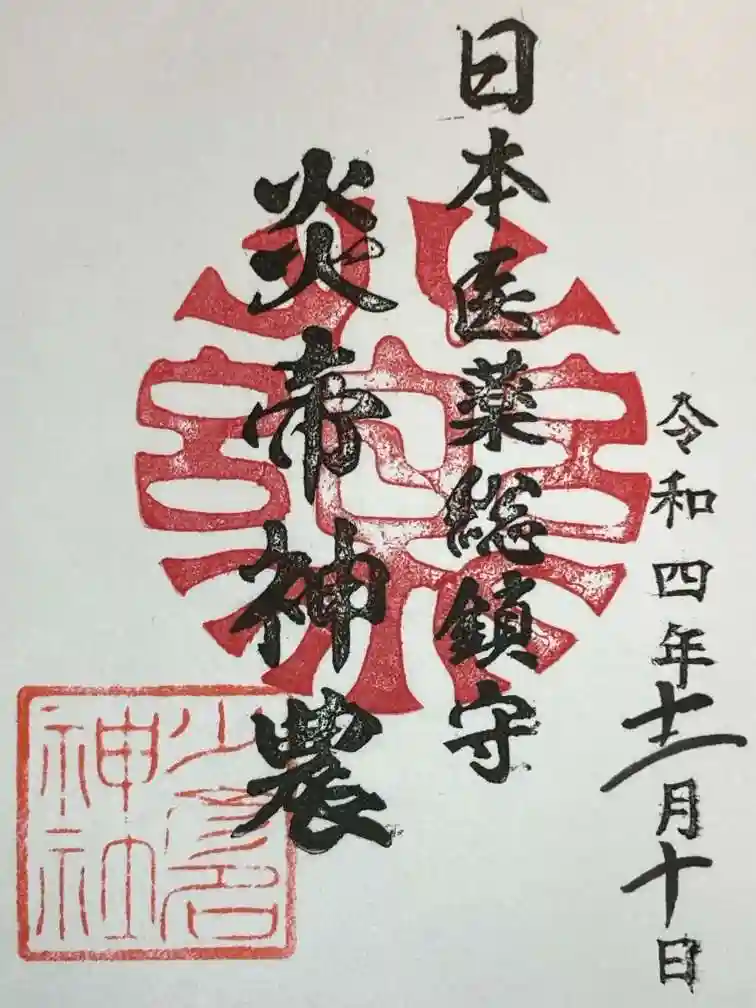 令和四年十二月十日
日本医薬総鎮守
炎帝神農
少彦名
神社